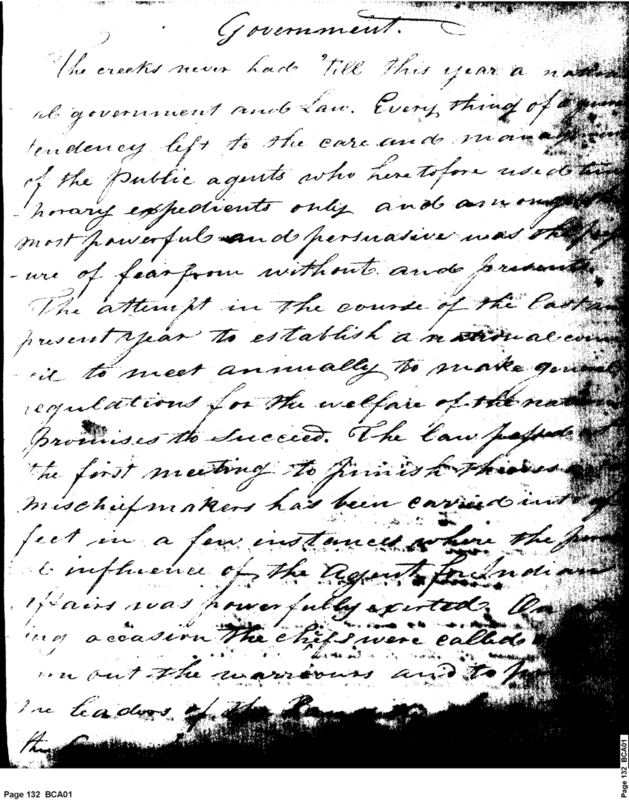 Government.
The creeks never had 'till this year a nation
al government and Law. Every thing of a
tendency left to the care and
of the public agents who heretofore used tem
porary expedients only and among the
most powerful and persuasive was the
ure of fear from without and presents.
The attempt in the course of the last
present year to establish a national coun
cil to meet annually to make general
regulations for the welfare of the nation
promises to succeed. The law passed at
the first meeting to punish thieves and
mischief makers has been carried into ef
fect in a few instances where the
influence of the Agent for Indian
affairs was powerfully exerted. On
ing occasion the chiefs were called
out the warriours and to
the leaders of the
the
Page 132 BCA01
Page 132 BCA01